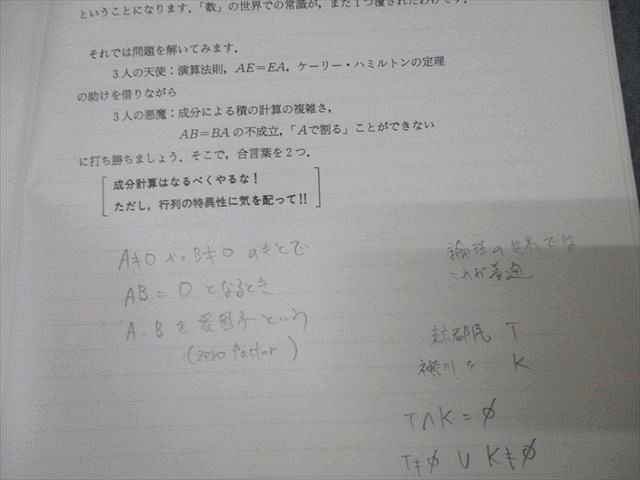 ということになります．「数」の世界での常識が，また1つ覆されたわけです．
それでは問題を解いてみます．
3人の天使：演算法則，AE=EA，ケーリー・ハミルトンの定理
の助けを借りながら
3人の悪魔：成分による積の計算の複雑さ，
AB=BAの不成立，「Aで割る」ことができない
に打ち勝ちましょう．そこで，合言葉を2つ．
成分計算はなるべくやるな！
ただし，行列の特異性に気を配って!!
A≠0 かつ B≠0 のもとで
AB = 0 となるとき
A、Bを零因子という
(zero factor)
論理の世界では
これが普通
東京都民 T
神奈川〃 K
T∩K = φ
T≠φ ∪ K≠φ